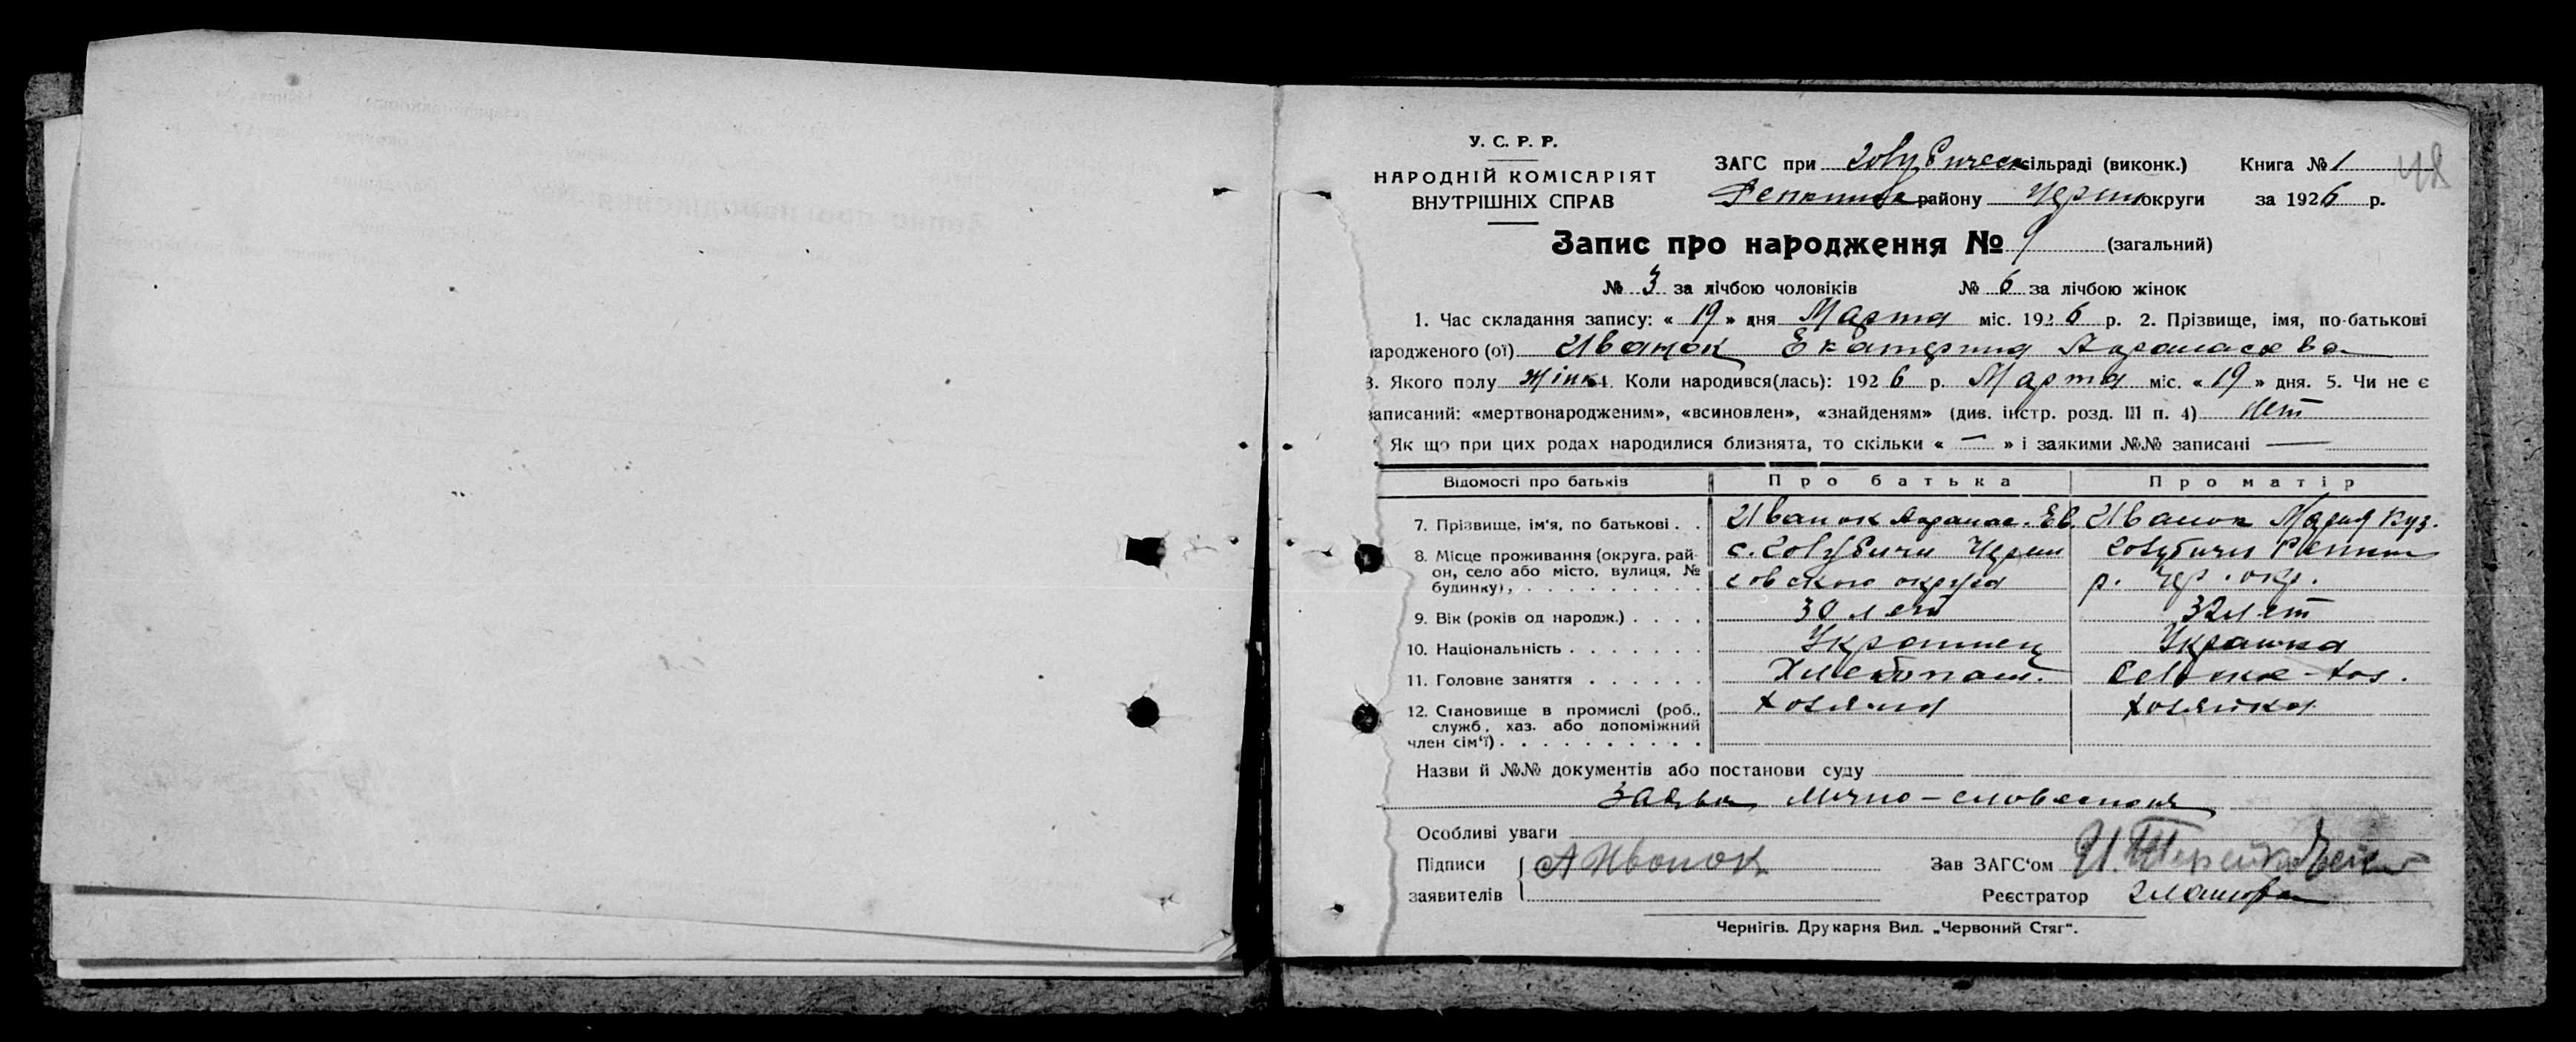 У. С. Р. Р.
НАРОДНІЙ КОМІСАРІЯТ
ВНУТРІШНІХ СПРАВ
ЗАГС при Голубическ сільраді (виконк.) Книга № 1 48
Репкинск району Черниг округи за 1926 р.
Запис про народження № 9 (загальний)
№ 3 за лічбою чоловіків № 6 за лічбою жінок
1. Час складання запису: « 19 » дня Марта міс. 1926 р. 2. Прізвище, імя, по-батькові
народженого (ої) Иванок Екатерина Афанасева
3. Якого полу жінк 4. Коли народився(лась): 1926 р. Марта міс. « 19 » дня. 5. Чи не є
записаний: «мертвонародженим», «всиновлен», «знайденям» (див. інстр. розд. III п. 4) Нет
Як що при цих родах народилися близнята, то скільки « — » і заякими №№ записані —
Відомості про батьків Про батька Про матір
7. Прізвище, ім'я, по батькові . . Иванок Афанас. Ев. Иванок Мария Куз.
8. Місце проживання (округа, рай- с. Голубичи Черни Голубичи Репкин
он, село або місто, вулиця, № говскою округа р. Чер. окр.
будинку), . . . . . . . . . .
9. Вік (років од народж.) . . . . 30 лет 32 лет
10. Національність . . . . . . . Украинец Украинка
11. Головне заняття . . . . . . Хлебопаш. Селкое-хоз.
12. Становище в промислі (роб., хозяина хозяйка
служб, хаз. або допоміжний
член сім'ї) . . . . . . . . . .
Назви й №№ документів або постанови суду
Заява лично-словесная
Особливі уваги
Підписи А Иванок Зав ЗАГС'ом
заявителів Реєстратор
Чернігів. Друкарня Вид. „Червоний Стяг".